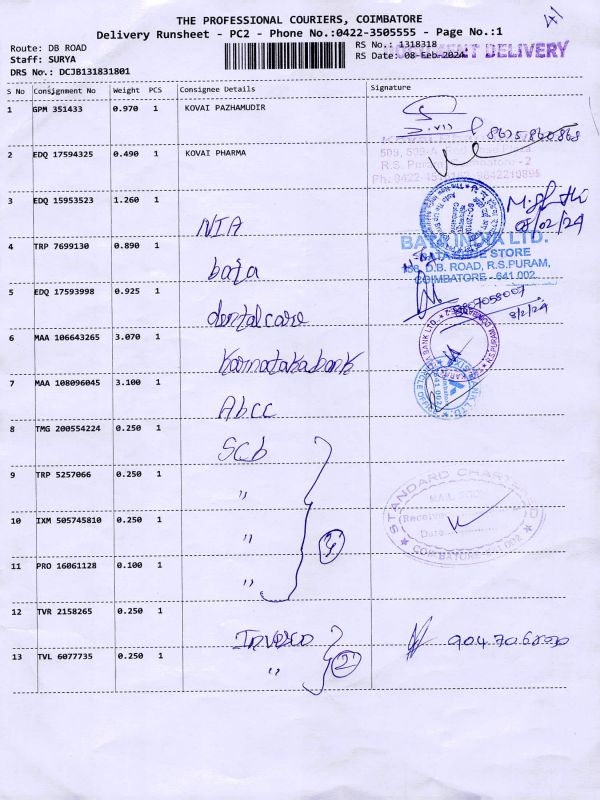 THE PROFESSIONAL COURIERS, COIMBATORE
41
Delivery Runsheet - PC2 - Phone No.:0422-3505555 - Page No.:1
Route: DB ROAD
RS No.: 1318318
Staff: SURYA
RS Date: 08-Feb-2024
DELIVERY
DRS No.: DCJB131831801
S No Consignment No Weight PCS Consignee Details Signature
1 GPM 351433 0.970 1 KOVAI PAZHAMUDIR
2 EDQ 17594325 0.490 1 KOVAI PHARMA
R.S. Puram
3 EDQ 15953523 1.260 1
NIA
08/02/24
4 TRP 7699130 0.890 1
bata
BATA INDIA LTD.
BATA SHOE STORE
D.B. ROAD, R.S.PURAM,
COIMBATORE - 641 002
5 EDQ 17593998 0.925 1
dentalcare
8/2/24
6 MAA 106643265 3.070 1
Karnatakabank
7 MAA 108096045 3.100 1
Abcc
8 TMG 200554224 0.250 1
Scb
9 TRP 5257066 0.250 1
"
STANDARD CHARTERED
10 IXM 505745810 0.250 1
"
Date
COIMBATORE 641 002
11 PRO 16061128 0.100 1
"
12 TVR 2158265 0.250 1
Invesco
13 TVL 6077735 0.250 1
"
2